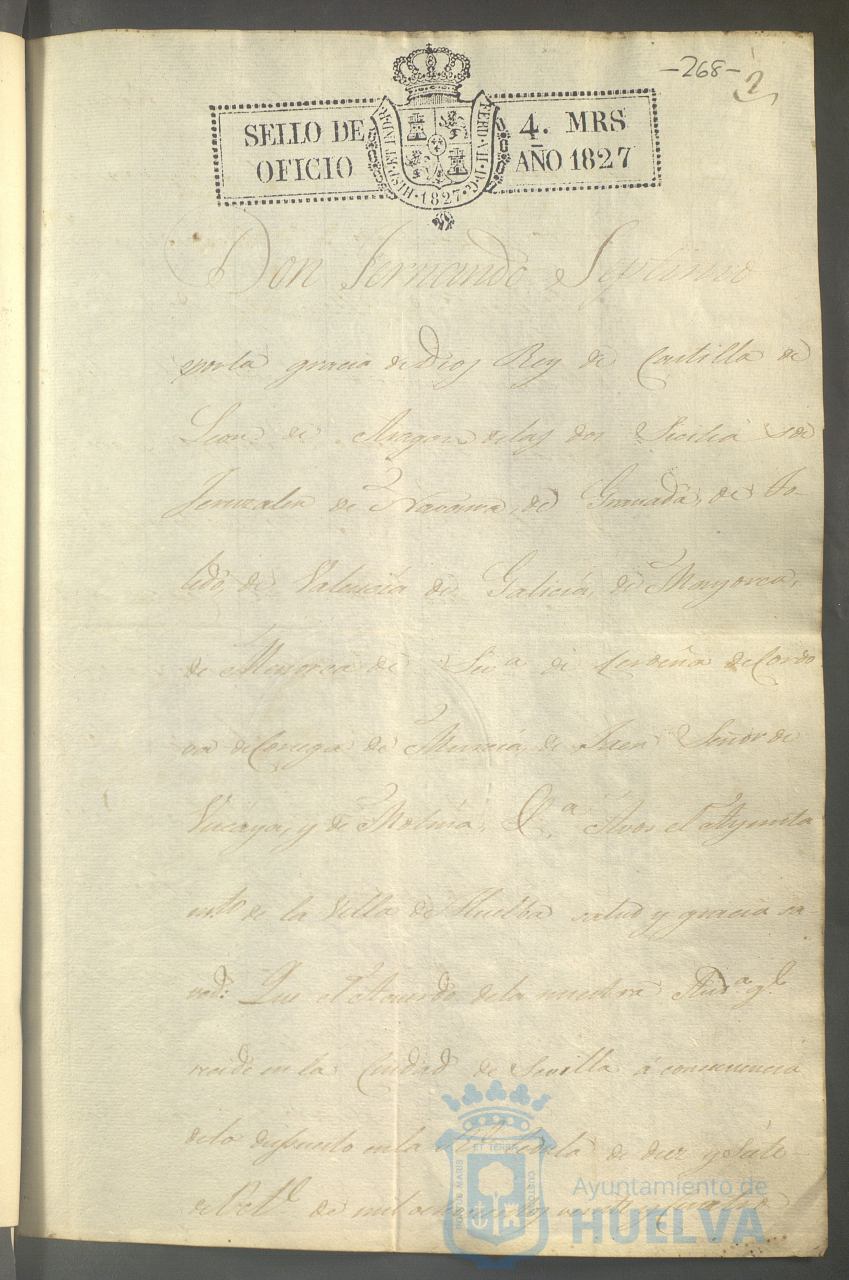 -268-
2
SELLO DE OFICIO
4. MRS AÑO 1827
HISP. ET IND. R. FERD. VII. D. G. 1827
Don Fernando Septimo
por la gracia de Dios Rey de Castilla de
Leon de Aragon de las dos Sicilias de
Jeruzalen de Navarra, de Granada, de To-
ledo de Valencia de Galicia, de Mayorca,
de Menorca de Sevª de Cerdeña de Cordo
va de Corcega de Murcia, de Jaen Señor de
Vizcaya, y de Molina, &ª Avos el Ayunta
mto de la Villa de Huelba salud y gracia sa-
ved: Que el Acuerdo de la nuestra Audª ql
recide en la Ciudad de Sevilla á consecuencia
de lo dispuesto en la Rl Cedula de diez y siete
de Octe de mil ochocientos veinte y cuatro
Ayuntamiento de
HUELVA